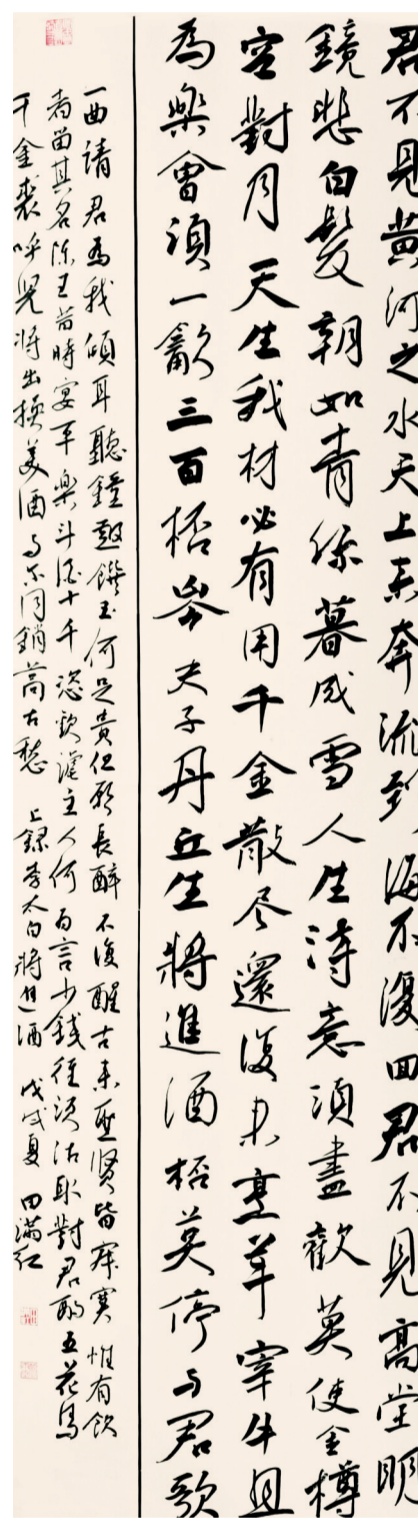 君不見黃河之水天上来奔流到海不復回君不見高堂明
鏡悲白髮朝如青絲暮成雪人生得意須盡歡莫使金樽
空對月天生我材必有用千金散尽還復来烹羊宰牛且
為樂會須一飲三百杯岑夫子丹丘生將進酒杯莫停与君歌
一曲請君為我傾耳聽鐘鼓饌玉何足貴但願長醉不復醒古来聖賢皆寂寞惟有飲
者留其名陈王昔時宴平樂斗酒十千恣歡謔主人何為言少錢徑須沽取對君酌五花馬
千金裘呼兒將出換美酒与尔同銷萬古愁 上錄李太白將進酒 戊戌夏 田滿紅